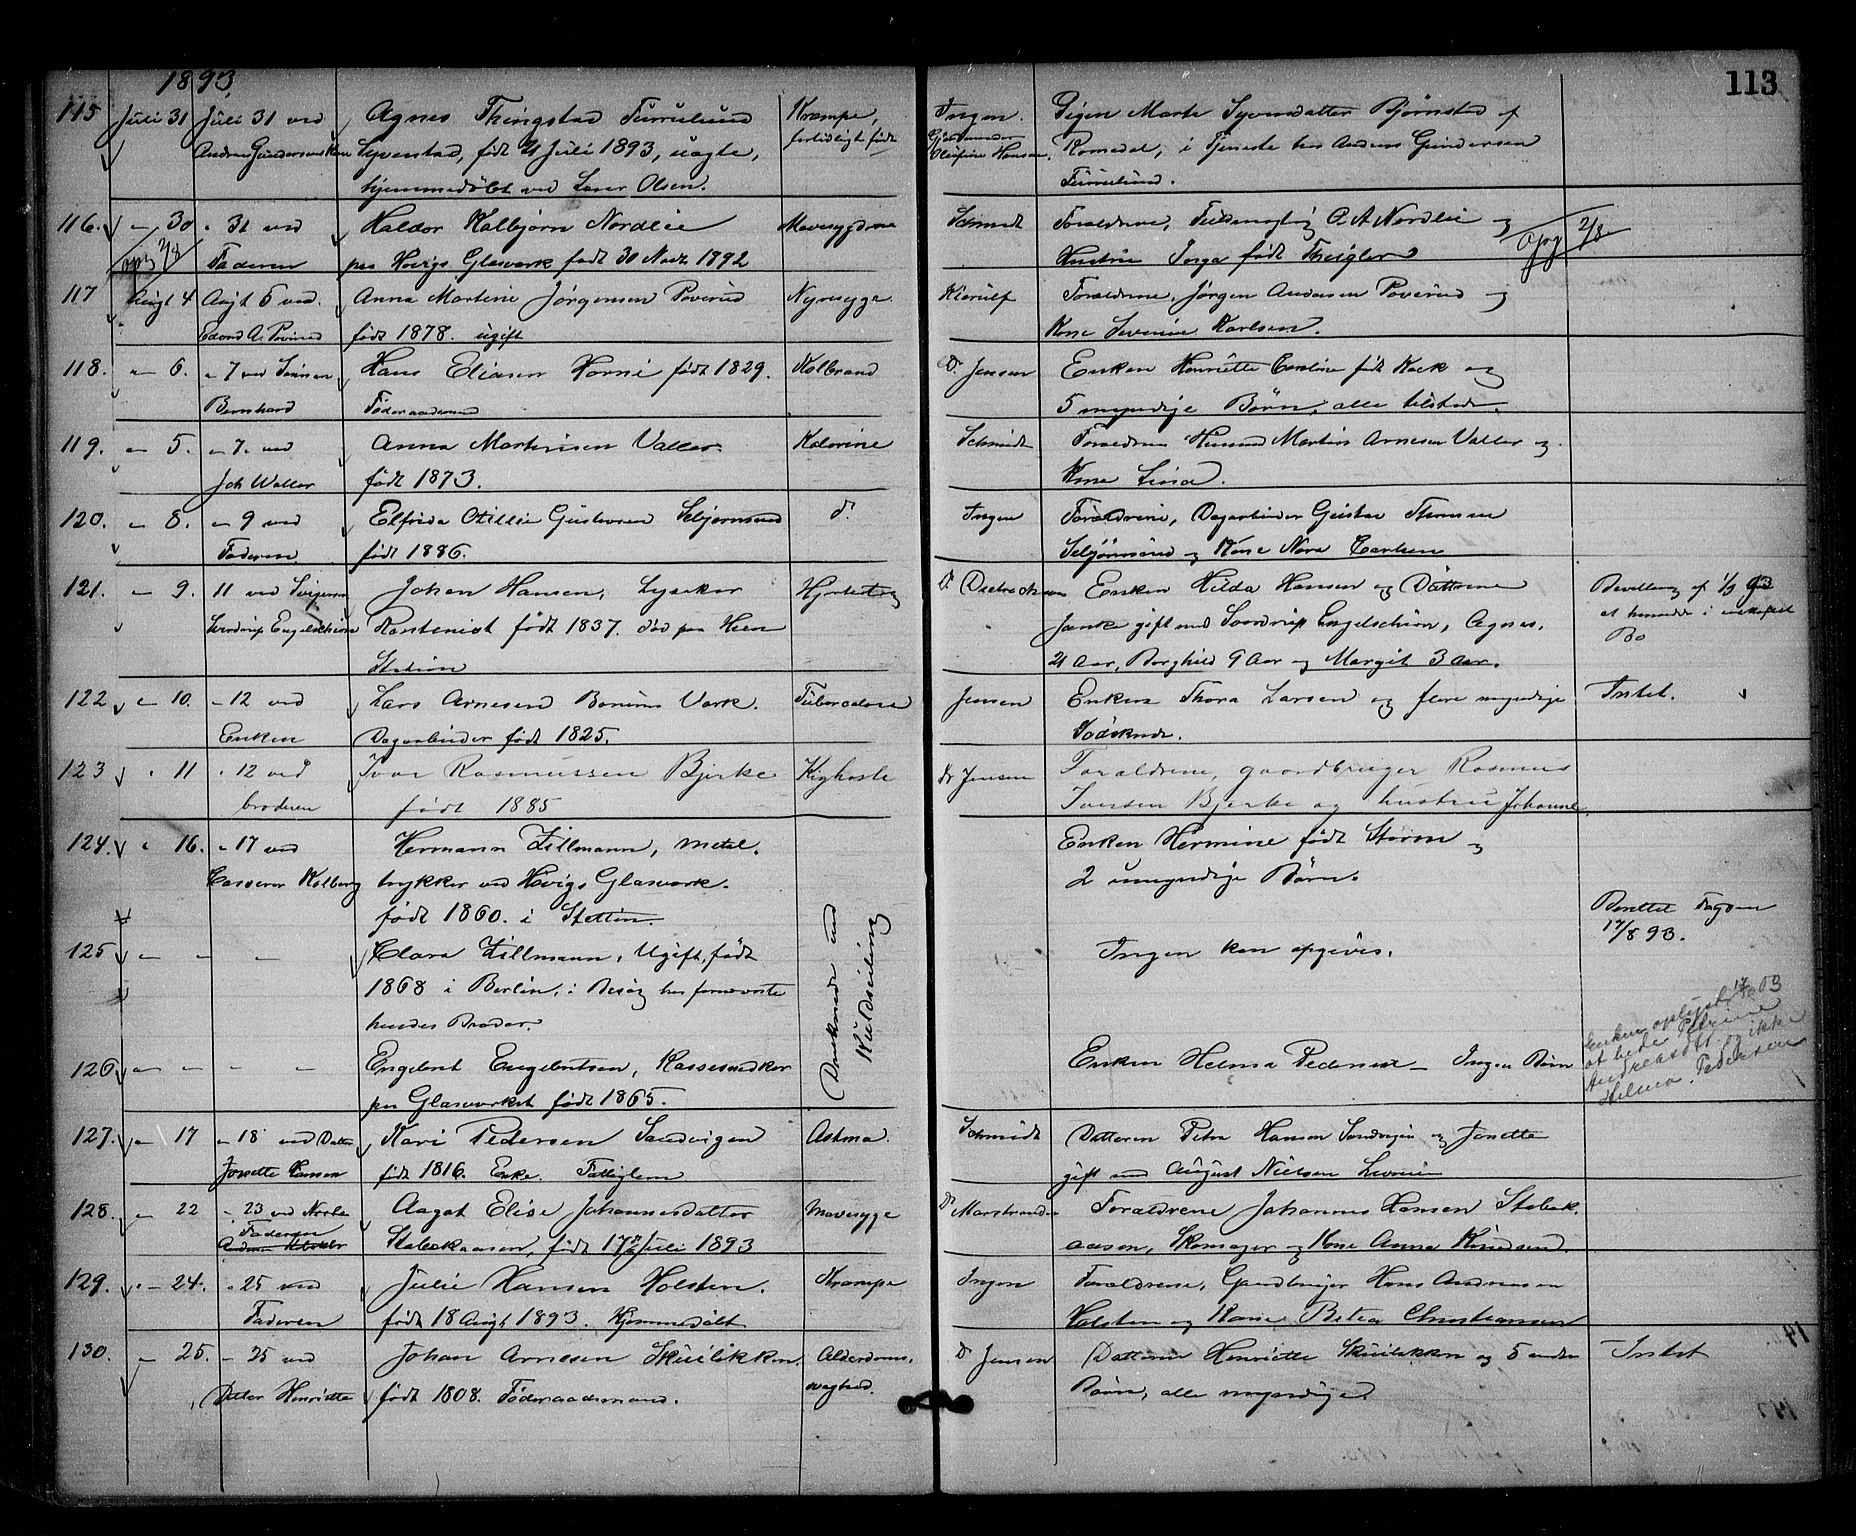 1893
113
115 Juli 31 Juli 31 ved Agnes Thingstad Furulund Krampe, Ingen. Pigen Marte Syversdatter Bjørnstad af
Anders Gundersen født 21 Juli 1893, uægte, fortidligt født Gjordemoder Romedal, i Tjeneste hos Anders Gundersen
hjemmedøbt ved Olsen. Olefine Hansen. Furulund.
116. - 30 - 31 ved Haldor Kolbjørn Nordlie Mavesygdom Schmidt Forældrene, O. A. Nordlie og
opg 2/8 Faderen paa Høvigs Glasværk født 30 Novb 1892 Hustru Inga født Theigler opg 2/8
117 Augt 4 Augt 5 ved. Anna Martine Jørgensen Poverud Nyresyge Kierulf Forældrene, Jørgen Andersen Poverud og
Edvard A. Poverud født 1878. ugift Kone Severine Karlsen.
118. - 6. - 7 ved Sønnen Hans Eliasen Horni født 1829. Kolbrand Dr Jensen Enken Henriette Caroline født Kock og
Bernhard Føderaadsmand 5 myndige Børn, alle tilstede.
119. - 5. - 7. ved Anna Martinsen Valler Kolerine Schmidt Forældrene Husmand Martin Arnesen Valler og
Joh Waller født 1873. Kone Lina.
120. - 8. - 9 ved Elfrida Otillie Gustavsen do Ingen Forældrene, Dagarbeider Gustav Thomsen
Faderen født 1886. og Kone Nora Carlsen
121. - 9. 11 ved Svigersøn Johan Hansen, Lysaker Hjerteslag Dr Enken Hilda Hansen og Døttrene Bevilling af 1/9 93
Sverdrup Engelschiøn Rentenist født 1837. død paa Hiem Janka gift med Sverdrup Engelschiøn, Agnes, at hensidde i uskiftet
Station 21 Aar, Borghild 9 Aar og Margit 3 Aar. Bo
122 - 10. - 12 ved Lars Arnesen Bærums Værk. Tuberculose Jensen Enken Thora Larsen og flere myndige Intet.
Enken Dagarbeider født 1825. Sødskende.
123 " 11 " 12 ved Ivar Rasmussen Bjerke Kighoste Dr Jensen Forældrene, gaardbruger Rasmus
broderen født 1885 Iversen Bjerke og hustru Johanne
124. " 16. " 17 ved Hermann Zillmann, metal- Enken Hermine født Storm og
Casserer Kolberg trykker ved Høvigs Glasværk. 2 umyndige Børn.
født 1860. i Stettin
Druknede ved Kuldseiling
Berettet Fogden
17/8 93.
125 - - - Clara Zillmann, Ugift, født Ingen kan opgives.
1868 i Berlin, i Besøg hos fornævnte
hendes Broder.
126 - - - Engebret Engebretsen, Kassesnedker Enken Helma Pedersen - Ingen Børn
paa Glasværket født 1865.
Enken oplyst
at hede Petrine
Andreasdtt. og ikke
Helma Pedersen
127. - 17 - 18 ved Datter Kari Pedersen Sandvigen Astma. Schmidt Datteren Petra Hansen Sandvigen og Jonette
Jonette Hansen født 1816. Enke. Fattiglem gift med August Nielsen
128. - 22 - 23 ved Aagot Elise Johannesdatter Mavesyge Dr Marstrander Forældrene Johannes Hansen Stabæk-
Faderen Stabækaasen, født 17 Juli 1893 aasen, Skomager og Kone Anna Knudsen.
129. " - 24. " 25 ved Julie Hansen Holsten. Krampe Ingen Forældrene, Gaardbruger Hans Andreasen
Faderen født 18 Augt 1893. Hjemmedøbt Holsten og Kone Petra Christiansen
130. - 25. - 25 ved Johan Arnesen Skuilikken. Alderdoms- Dr Jensen Datteren Henriette Skuilikken og 5 andre Intet
Datter Henriette født 1808. Føderaadsmand. svaghed. Børn, alle myndige.